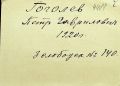 Гоголев
Петр Гаврилович
1220г
Зелободка № 140